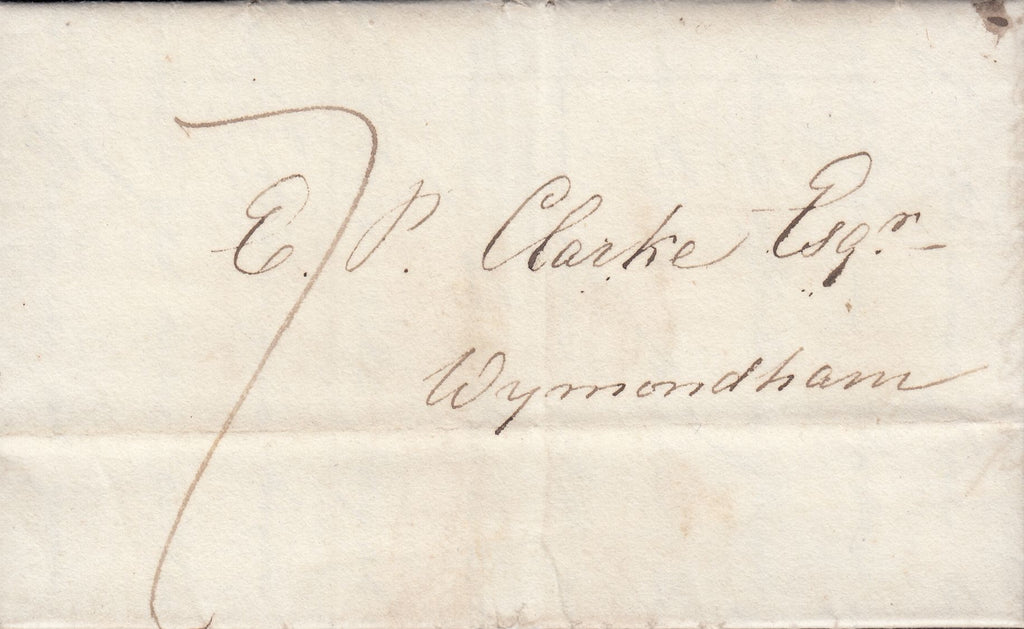 7
E. P. Clarke Esqr.
Wymondham